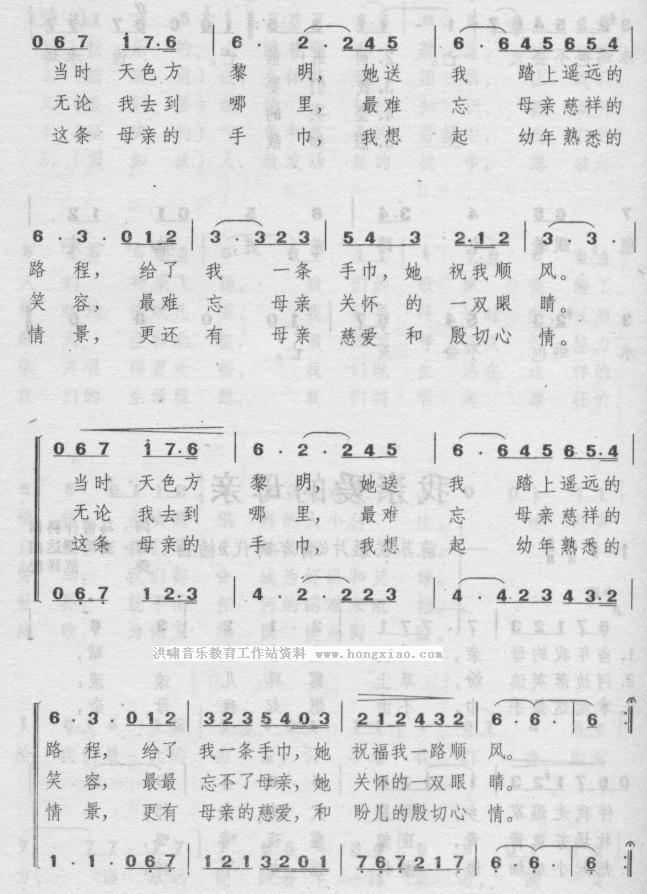 0 6 7 i 7·6 | 6· 2· 2 4 5 | 6· 6 4 5 6 5 4 |
当时 天色方 黎 明，她送 我 踏上遥远的
无论 我去到 哪 里，最难 忘 母亲慈祥的
这条 母亲的 手 巾，我想 起 幼年熟悉的
6·3· 0 1 2 | 3· 3 2 3 | 5 4·3 2·1 2 | 3· 3·|
路程，给了 我 一条 手巾，她 祝我顺 风。
笑容，最难 忘 母亲 关怀 的 一双眼 睛。
情景，更还 有 母亲 慈爱 和 殷切心 情。
0 6 7 i 7·6 | 6· 2· 2 4 5 | 6· 6 4 5 6 5·4 |
当时 天色方 黎 明，她送 我 踏上遥远的
无论 我去到 哪 里，最难 忘 母亲慈祥的
这条 母亲的 手 巾，我想 起 幼年熟悉的
0 6 7 1 2·3 | 4· 2· 2 2 3 | 4· 4 2 3 4 3·2 |
洪啸音乐教育工作站资料 www.hongxiao.com
6·3· 0 1 2 | 3 2 3 5 4 0 3 | 2 1 2 4 3 2 | 6· 6· :‖
路程，给了 我一条手巾，她 祝福我一路顺 风。
笑容，最最 忘不了母亲，她 关怀的一双眼 睛。
情景，更有 母亲的慈爱，和 盼儿的殷切心 情。
1·1· 0 6 7 | 1 2 1 3 2 0 1 | 7 6 7 2 1 7 | 6· 6· :‖